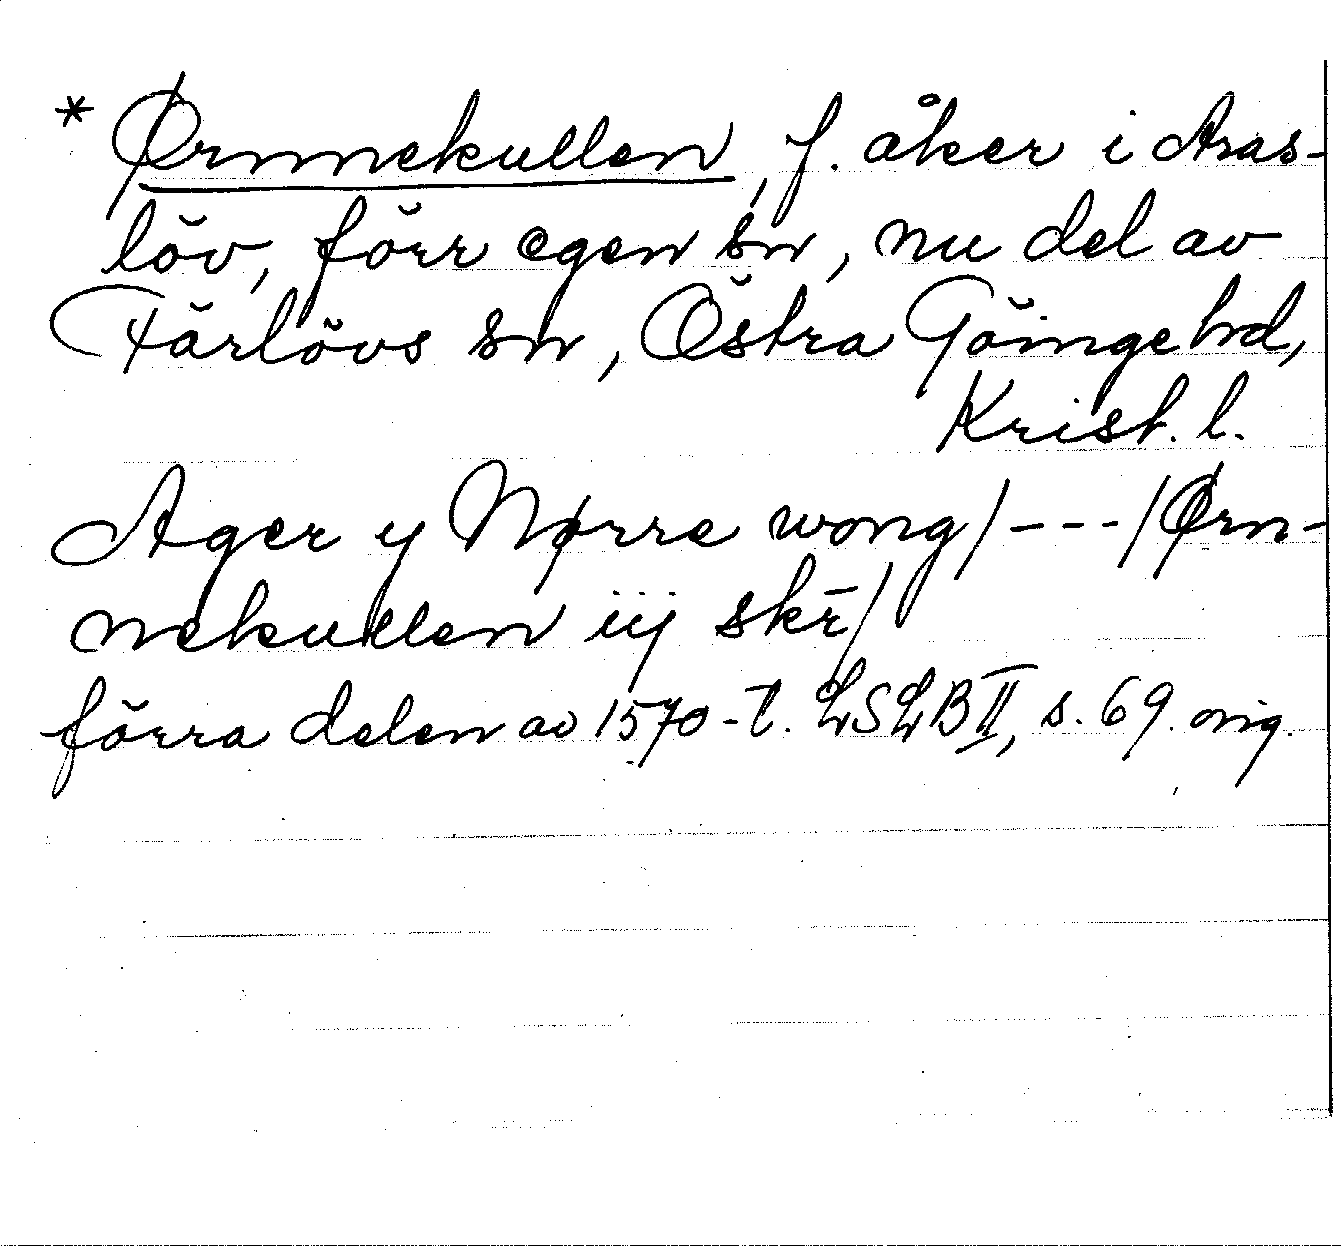 * Ørnnekullen, f. åker i Aras-
löv, förr egen sn, nu del av
Färlövs sn, Östra Göinge hd,
Krist. l.
Ager y Nørre wong/---/Ørn-
nekullen iij skr̄/
förra delen av 1570-t. LSLB II, s. 69. orig.